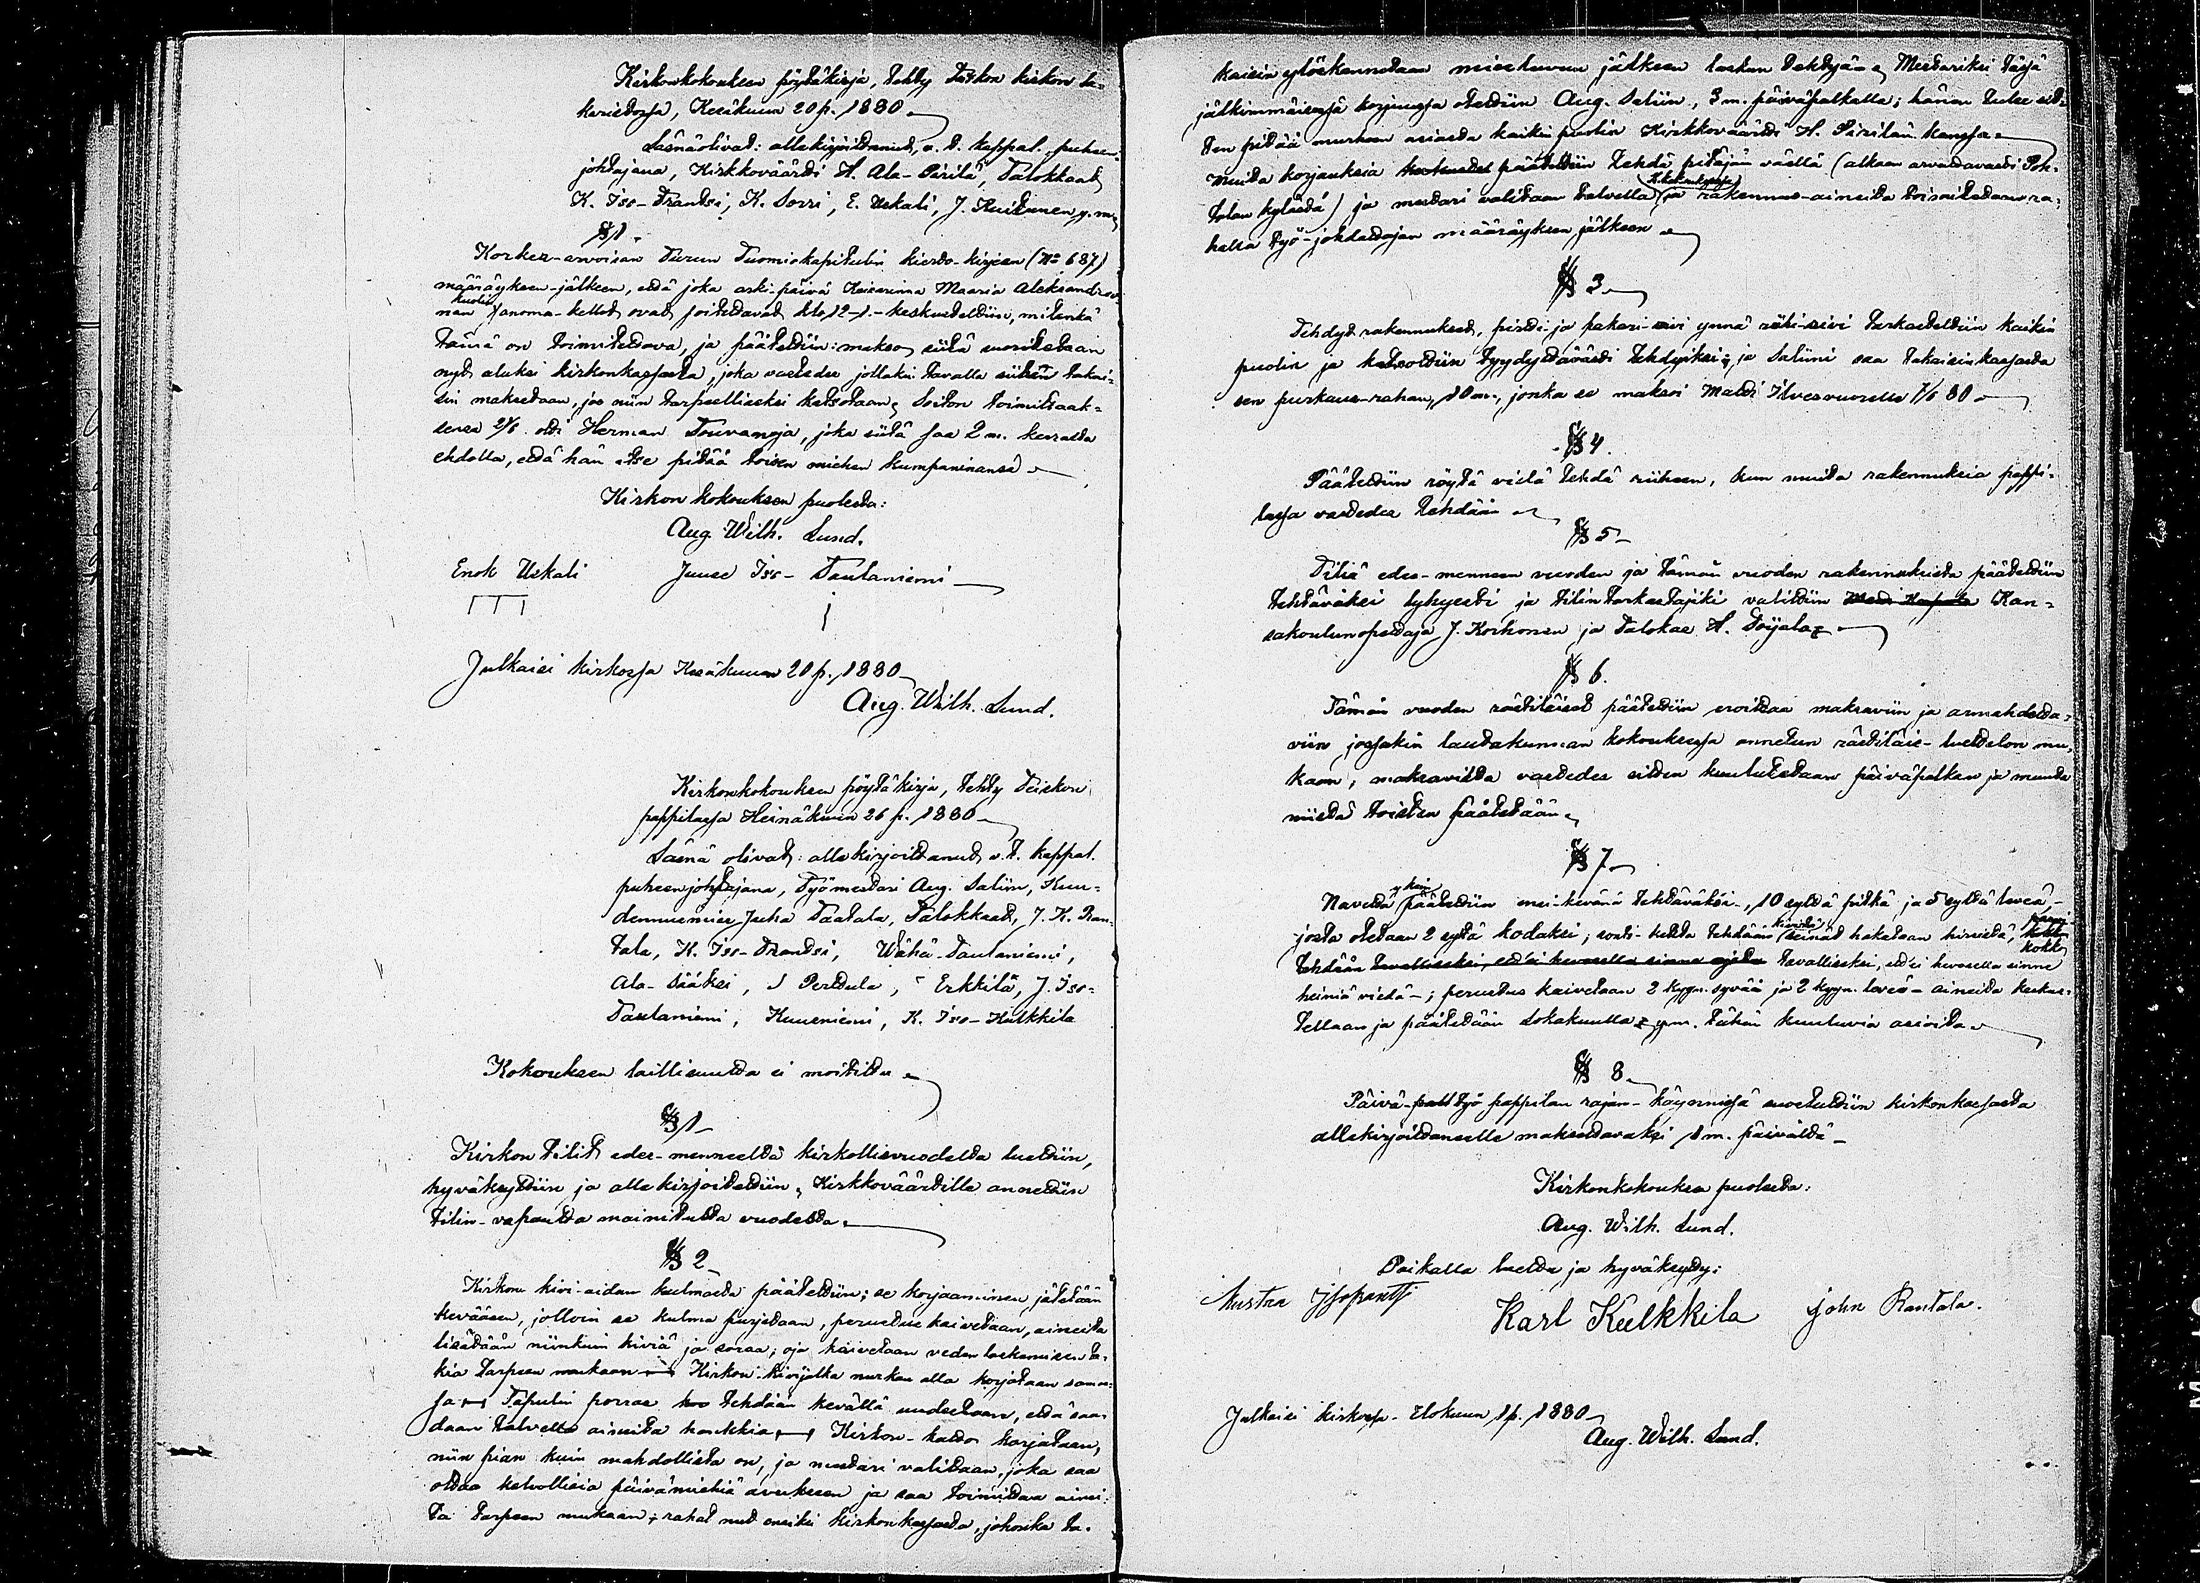 Kirkonkokouksen pöytäkirja, tehty Teiskon kirkon sa-
karistossa, Kesäkuun 20 p. 1880
Läsnä olivat: allekirjoittanut, v. t. kappal. puheen-
johtajana, Kirkkoväärti H. Ala-Pirilä, Talokkaat
K. Iso-Frantsi, K. Sorri, E. Uskali, J. Kuitunen y. m.
§ 1.
Korkea-arvoisan Turun Tuomiokapitulin kierto-kirjeen (No 687)
määräyksen-jälkeen, että joka arki-päivä Keisarinna Maaria Aleksandrow-
nan kuolin sanoma-kellot ovat soitettavat klo 12-1. - keskusteltiin, mitenkä
tämä on toimitettava, ja päätettiin: makso siitä suoritetaan
nyt aluksi kirkonkassasta, joka vastedes jollakin tavalla siihen takai-
sin maksetaan, jos niin tarpeelliseksi katsotaan. Soiton toimittaak-
sensa 2/6 otti Herman Touvanoja, joka siitä saa 2 m. kerralta
ehdolla, että hän itse pitää toisen miehen kumpaninansa
Kirkon kokouksen puolesta:
Aug. Wilh. Lund.
Enok Uskali Juuse Iso-Tautaniemi
Julkaisi kirkossa Kesäkuun 20 p. 1880
Aug. Wilh. Lund.
Kirkonkokouksen pöytäkirja, tehty Teiskon
pappilassa Heinäkuun 26 p. 1880
Läsnä olivat: allekirjoittanut v. t. kappal.
puheenjohtajana, Työmestari Aug. Salin, Kuu-
dennusmies Juha Taatala, Talokkaat, J. K. Ran-
tala, K. Iso-Frantsi, Wähä-Tautaniemi,
Ala-Sääksi, J Perttula, Erkkilä, J. Iso-
Tautaniemi, Kuusniemi, K. Iso-Kulkkila
Kokouksen laillisuutta ei moitittu
§ 1
Kirkon tilit edes-menneeltä kirkollisvuodelta luettiin,
hyväksyttiin ja allekirjoitettiin. Kirkkoväärtille annettiin
tilin-vapautta mainitulta vuodelta.
§ 2
Kirkon kivi-aidan kulmasta päätettiin; se korjaaminen jätetään
kevääsen, jolloin se kulma purjetaan, perustus kaivetaan, aineita
lisätään niinkuin kiviä ja soraa; oja kaivetaan veden laskemisen ta-
kia tarpeen mukaan Kirkon kivijalka nurkan alla korjataan samas-
sa Tapulin porras tehdään kevällä uudestaan, että saa-
daan talvella aineita hankkia Kirkon-katto korjataan,
niin pian kuin mahdollista on, ja mestari valitaan, joka saa
ottaa kelvollisia päivämiehiä avuksen ja saa toimittaa ainei-
ta tarpeen mukaan; rahat nyt ensiksi kirkonkassasta, johonka ta-
kaisin ylöskannetaan miesluvun jälkeen lasku tehtyä. Mestariksi tässä
jälkimmäisessä korjuussa otettiin Aug. Salin, 3 m. päiväpalkalla; hänen tulee sit-
ten pitää murheen asiasta kaikin puolin Kirkkoväärti H. Pirilän kanssa.
Muita korjauksia päätettiin tehdä pitäjän väellä (alkaen arvattavasti Poh-
tolan kylästä) ja mestari valitaan talvella (K.kokouksessa) ja rakennus-aineita toimitetaan ra-
halla työ-johdattajan määräyksen jälkeen
§ 3
Tehdyt rakennukset, pirtti- ja pakari-sivi ynnä riihi-sivi tarkasteltiin kaikin
puolin ja katsottiin tyydyttävästi tehdyiksi; ja Salini saa takaisin kassasta
sen purkaus-rahan, 10 m., jonka se maksoi Matti Ilvesvuorelle 1/6 80
§ 4.
Päätettiin röytä vielä tehdä riiheen, kun muita rakennuksia pappi-
lassa vastedes tehdään
§ 5
Tiliä edes-menneen vuoden ja tämän vuoden rakennuksista päätettiin
tehtäväksi lyhyesti ja tilintarkastajiki valittiin Kan-
sakoulunopettaja J. Korhonen ja Talokas H. Toijala.
§ 6.
Tämän vuoden rästiläiset päätettiin eroittaa maksaviin ja armahdetta-
viin jossakin lautakunnan kokouksessa annetun rästiläis-luettelon mu-
kaan; maksavilta vastedes sitten kuulutetaan päiväpalkan ja muuta
niistä toisten päätetään.
§ 7
Navetta yksin päätettiin ensi-kevänä tehtäväksi, 10 syltä pitkä ja 5 syltä leveä,-
josta otetaan 2 syltä kodaksi; sonti-kelta tehdään kivistä seinät hakataan hirsistä, parvi
tehdään tavalliseksi, että ei hevosella sinne ajeta tavalliseksi, ett'ei hevosella sinne
heiniä viedä-; perustus kaivetaan 2 kyyn. syvää ja 2 kyyn. leveä- aineita keskus-
tellaan ja päätetään Lokakuulla y.m. tähän kuuluvia asioita.
§ 8
Päivä-palttyö pappilan rajan-käynnissä suostuttiin kirkonkassasta
allekirjoittaneelle maksettavaksi 1 m. päivältä
Kirkonkokouksen puolesta:
Aug. Wilh. Lund.
Paikalla luettu ja hyväksytty:
Kustaa Karl Kulkkila John Rantala.
Julkaisi kirkossa Elokuun 1 p. 1880
Aug. Wilh. Lund.